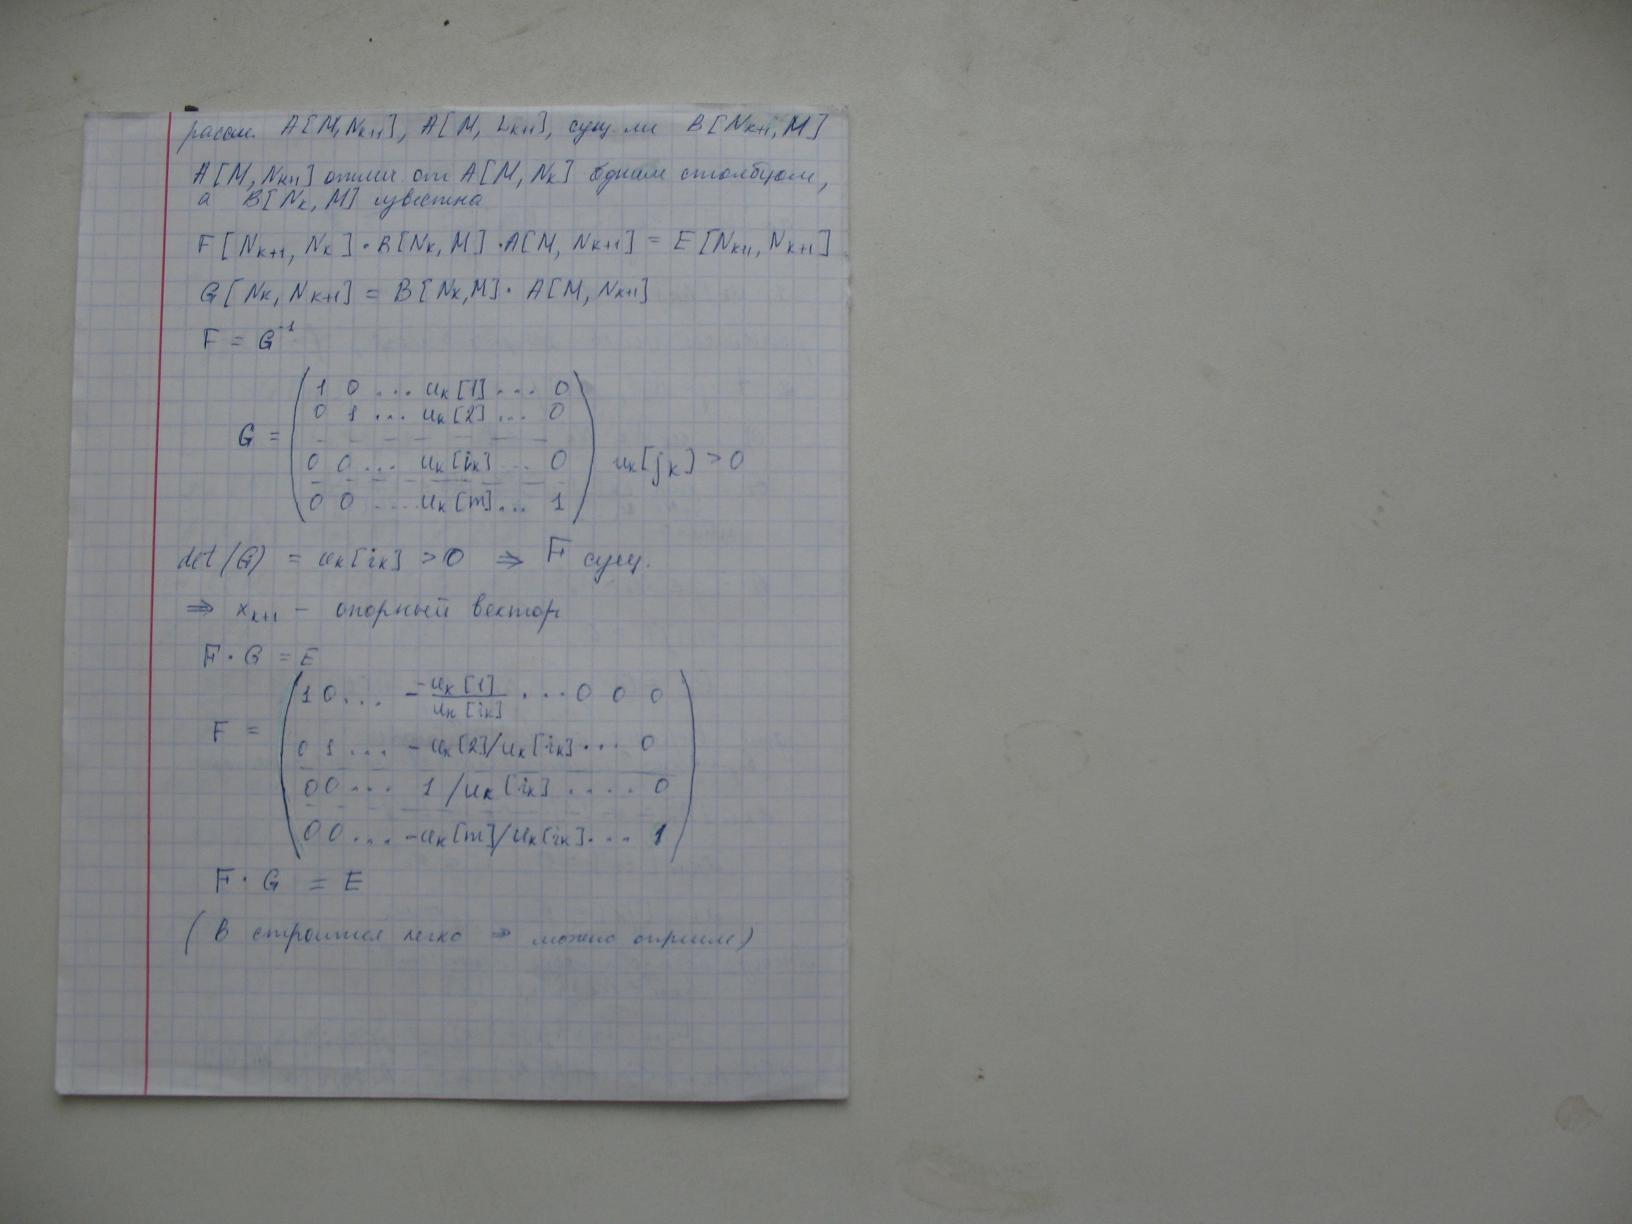 рассм. A[M, Nₖ₊₁], A[M, Lₖ₊₁], сущ. ли B[Nₖ₊₁, M]
A[M, Nₖ₊₁] отлич от A[M, Nₖ] одним столбцом,
а B[Nₖ, M] известна
F[Nₖ₊₁, Nₖ] · B[Nₖ, M] · A[M, Nₖ₊₁] = E[Nₖ₊₁, Nₖ₊₁]
G[Nₖ, Nₖ₊₁] = B[Nₖ, M] · A[M, Nₖ₊₁]
F = G⁻¹
1 0 ... uₖ[1] ... 0
0 1 ... uₖ[2] ... 0
G =
0 0 ... uₖ[iₖ] ... 0 uₖ[jₖ] > 0
0 0 .... uₖ[m] ... 1
det(G) = uₖ[iₖ] > 0 ⇒ F сущ.
⇒ xₖ₊₁ – опорный вектор
F · G = E
1 0 ... -uₖ[1]/uₖ[iₖ] ... 0 0 0
F =
0 1 ... -uₖ[2]/uₖ[iₖ] ... 0
0 0 ... 1/uₖ[iₖ] .... 0
0 0 ... -uₖ[m]/uₖ[iₖ] ... 1
F · G = E
(B строится легко ⇒ можно)